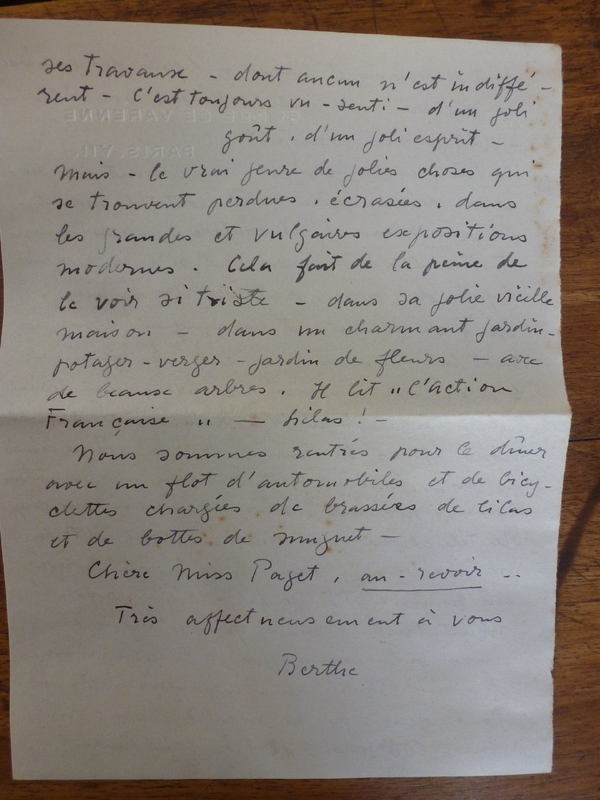 ses travaux - dont aucun n'est indiffé-
rent - C'est toujours vu - senti - d'un joli
goût, d'un joli esprit -
mais - le vrai genre de jolies choses qui
se trouvent perdues, écrasées, dans
les grandes et vulgaires expositions
modernes. Cela fait de la peine de
le voir si triste - dans sa jolie vieille
maison - dans un charmant jardin-
potager-verger-jardin de fleurs - avec
de beaux arbres. Il lit "l'Action
Française" - hélas ! -
Nous sommes rentrés pour le dîner
avec un flot d'automobiles et de bicy-
clettes chargées de brassées de lilas
et de bottes de muguet -
Chère Miss Paget, au-revoir --
Très affectueusement à vous
Berthe
RUE DE VARENNE
PARIS.VII.